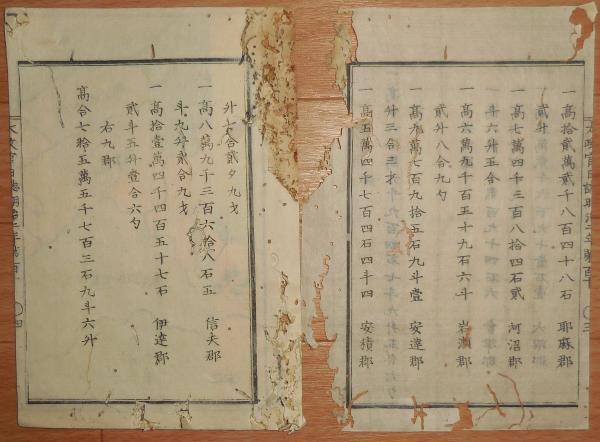 一高拾貳萬貳千八百四十八石　耶蘇郡
貳升
一高七萬四千三百八拾四石貳　河沼郡
斗六升五合
一高六萬九千百五十九石六斗　岩瀬郡
貳升八合九勺
一高九萬七百九拾五石九斗壹　安達郡
升三合三才
一高五萬四千七百四石四斗四　安積郡
升七合貳夕九才
一高八萬九千三百六拾八石五　信夫郡
斗九升貳合九才
一高拾壹萬四千四百五十七石　伊達郡
貳斗五升壹合六勺
右九郡
高合七拾五萬五千七百三石九斗六升
太政官日誌明治二年第百
三
四